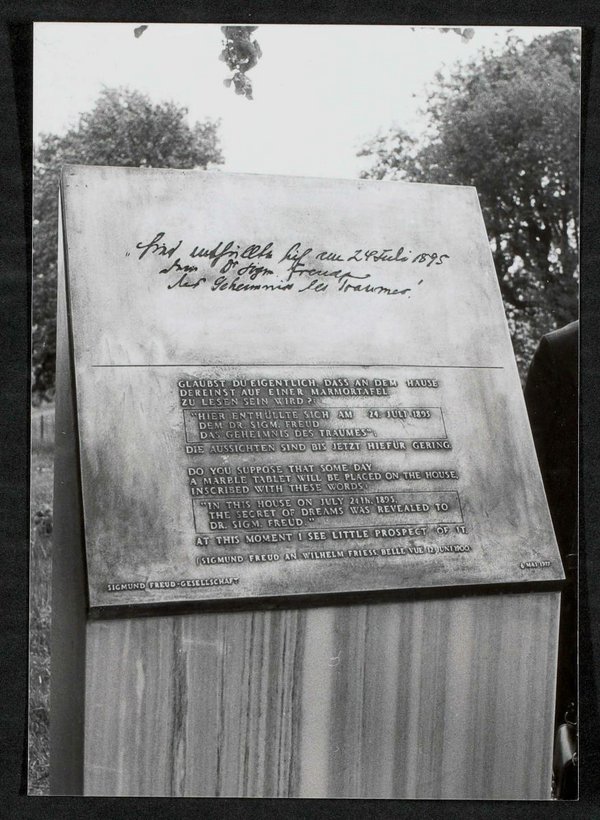 „Hier enthüllte sich am 24 Juli 1895
dem Dr Sigm. Freud
das Geheimnis des Traumes"
GLAUBST DU EIGENTLICH, DASS AN DEM HAUSE
DEREINST AUF EINER MARMORTAFEL
ZU LESEN SEIN WIRD?:
"HIER ENTHÜLLTE SICH AM 24. JULI 1895
DEM DR. SIGM. FREUD
DAS GEHEIMNIS DES TRAUMES".
DIE AUSSICHTEN SIND BIS JETZT HIEFÜR GERING.
DO YOU SUPPOSE THAT SOME DAY
A MARBLE TABLET WILL BE PLACED ON THE HOUSE,
INSCRIBED WITH THESE WORDS:
"IN THIS HOUSE ON JULY 24TH, 1895,
THE SECRET OF DREAMS WAS REVEALED TO
DR. SIGM. FREUD."
AT THIS MOMENT I SEE LITTLE PROSPECT OF IT.
(SIGMUND FREUD AN WILHELM FLIESS, BELLE VUE 12. JUNI 1900)
SIGMUND FREUD-GESELLSCHAFT
6. MAI 1977